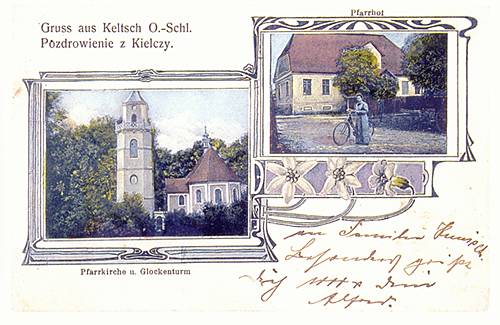 Gruss aus Keltsch O.-Schl.
Pozdrowienie z Kielczy.
Pfarrhof
Pfarrkirche u. Glockenturm
an Familie
Besonders grüßt
Dich
Alfred.